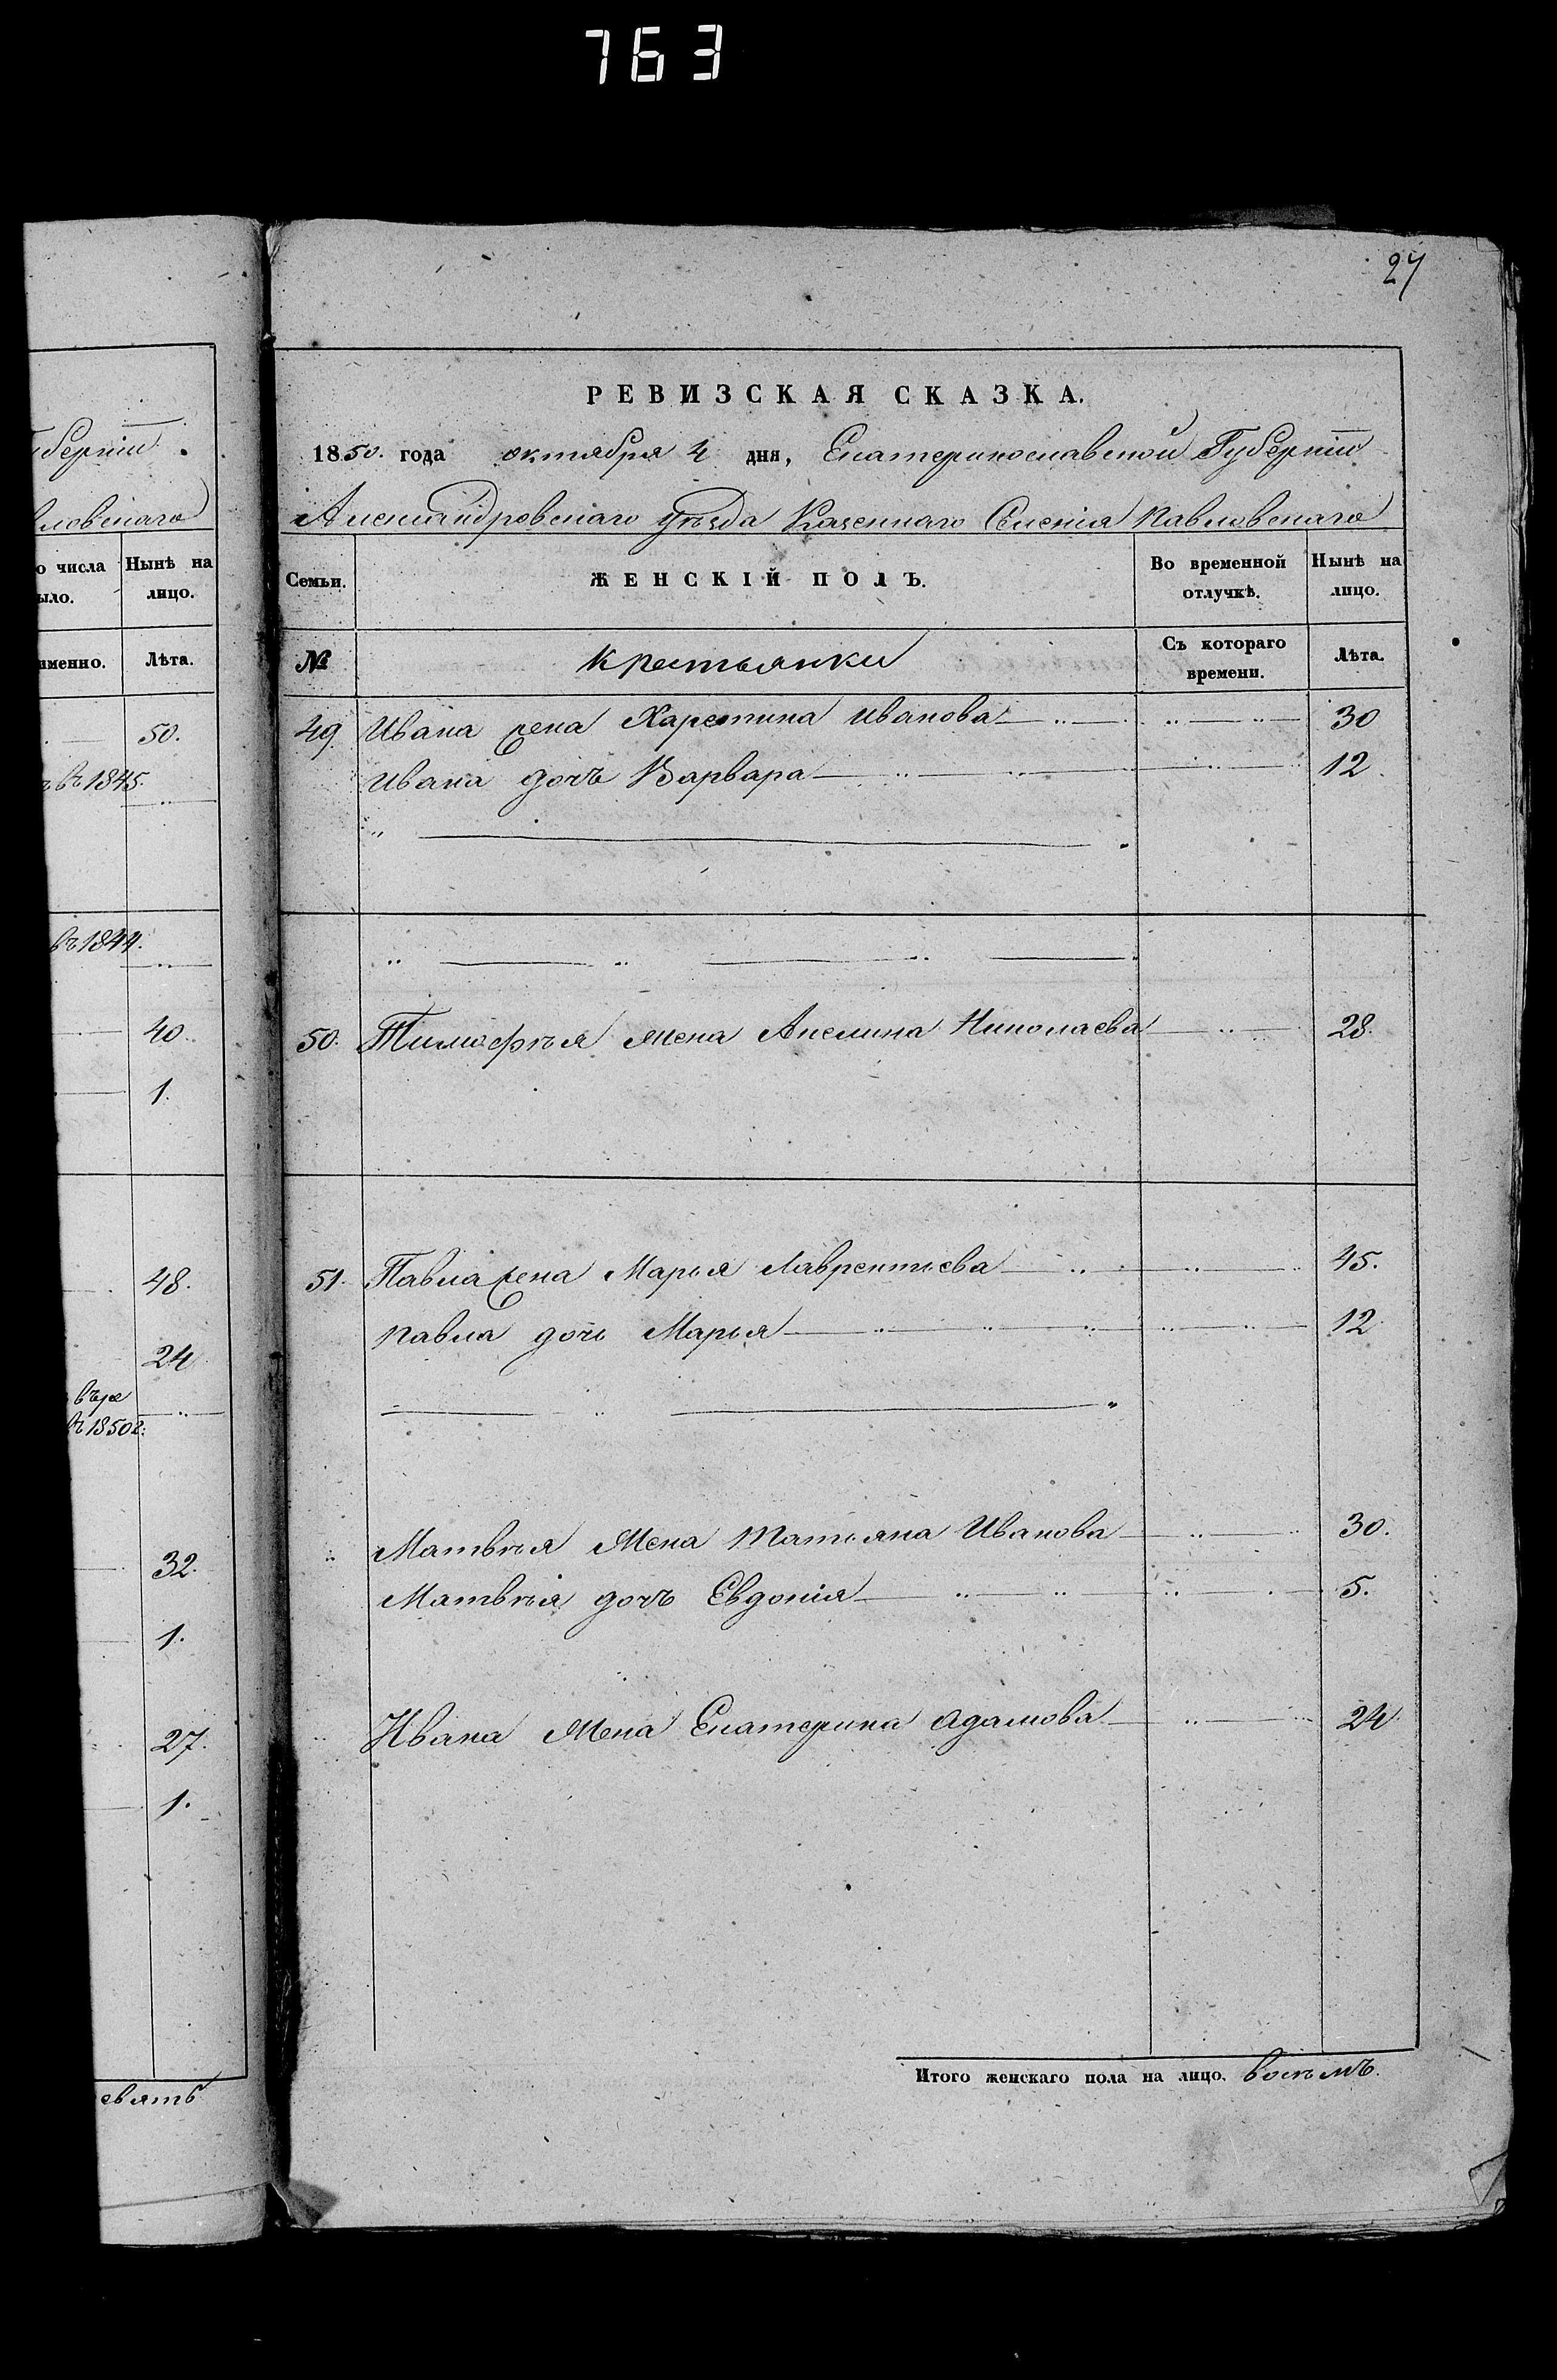 763
27
РЕВИЗСКАЯ СКАЗКА.
1850. года октября 4 дня, Екатеринославской Губерніи
Александровскаго уѣзда Казеннаго Селенія Павловскаго
Семьи. ЖЕНСКІЙ ПОЛЪ. Во временной отлучкѣ. Нынѣ на лицо.
№ Крестьянки Съ котораго времени. Лѣта.
49 Ивана жена Харетина Иванова 30
Ивана дочъ Варвара 12
50. Тимофѣя жена Акелина Николаева 28.
51. Павла жена Марья Лаврентьева 45.
Павла дочь Марья 12
Матвѣя жена Татьяна Иванова 30.
Матвѣя дочъ Евдокія 5.
Ивана жена Екатерина Адамова 24
Итого женскаго пола на лицо. восемъ.
уберніи.
ловскаго
о числа Нынѣ на
ыло. лицо.
именно. Лѣта.
50.
въ 1845.
въ 1844.
40.
1.
48.
24
въ 1850 г:
32.
1.
27.
1.
евять